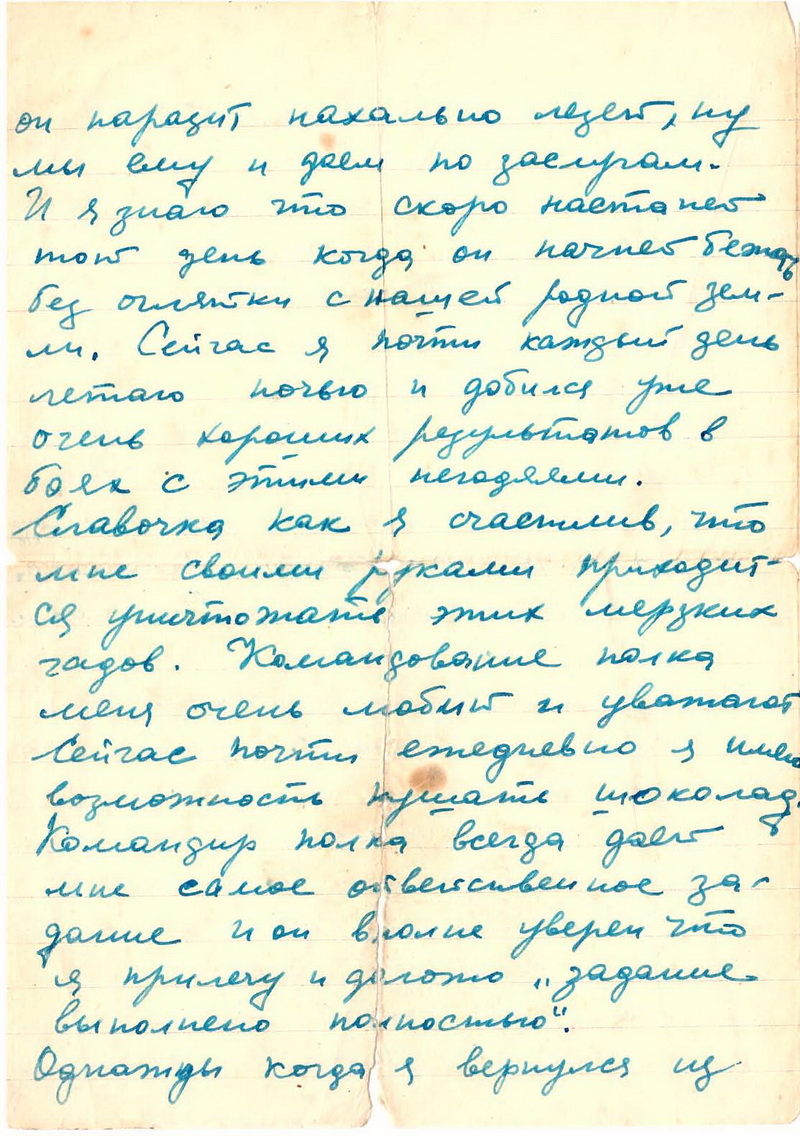 он паразит нахально лезет, ну
мы ему и даем по заслугам.
И я знаю что скоро настанет
тот день когда он начнет бежать
без оглятки с нашей родной зем-
ли. Сейчас я почти каждый день
летаю ночью и добился уже
очень хороших результатов в
боях с этими негодяями.
Славочка как я счастлив, что
мне своими руками приходит-
ся уничтожать этих мерзких
гадов. Командование полка
меня очень любит и уважают
Сейчас почти ежедневно я имею
возможность кушать шоколад.
Командир полка всегда дает
мне самое ответственное за-
дание и он вполне уверен что
я прилечу и доложу „задание
выполнено полностью“.
Однажды когда я вернулся из